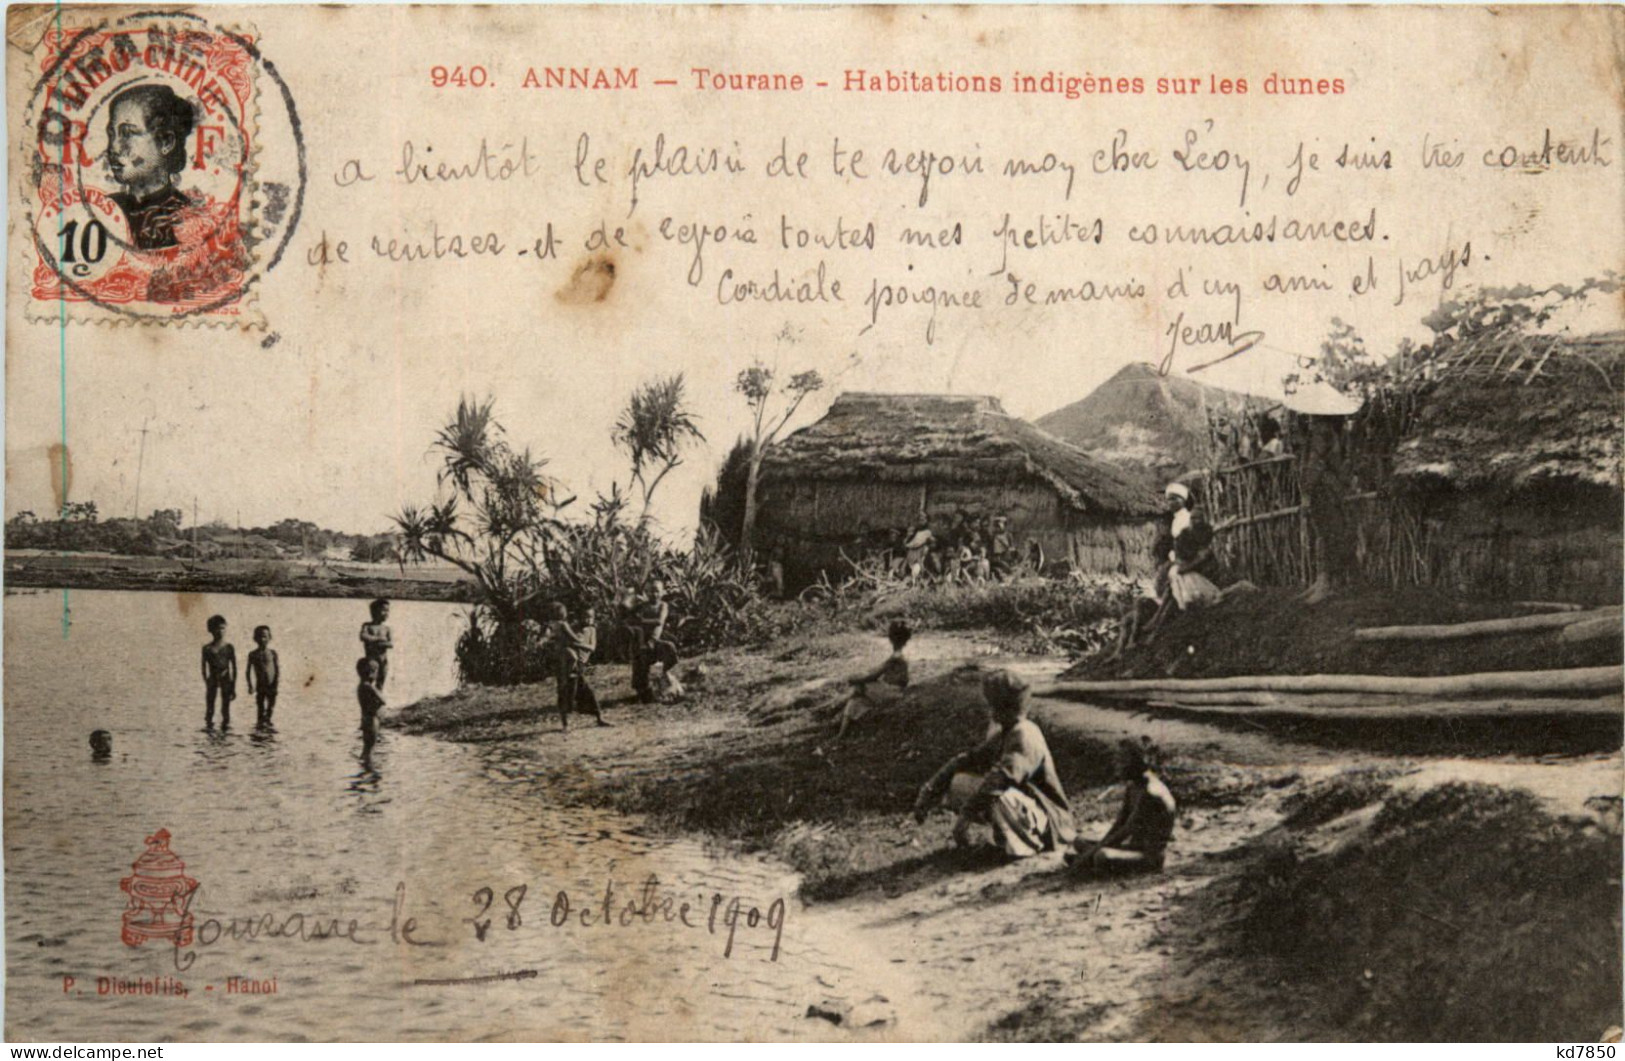 940. ANNAM — Tourane - Habitations indigènes sur les dunes
TOURANE
INDO-CHINE
R F.
POSTES
10
c
a bientôt le plaisir de te revoir mon cher Léon, je suis très content
de rentrer et de revoir toutes mes petites connaissances.
Cordiale poignée de mains d'un ami et pays.
Jean
Tourane le 28 Octobre 1909
P. Dieulefils, - Hanoi
kd7850